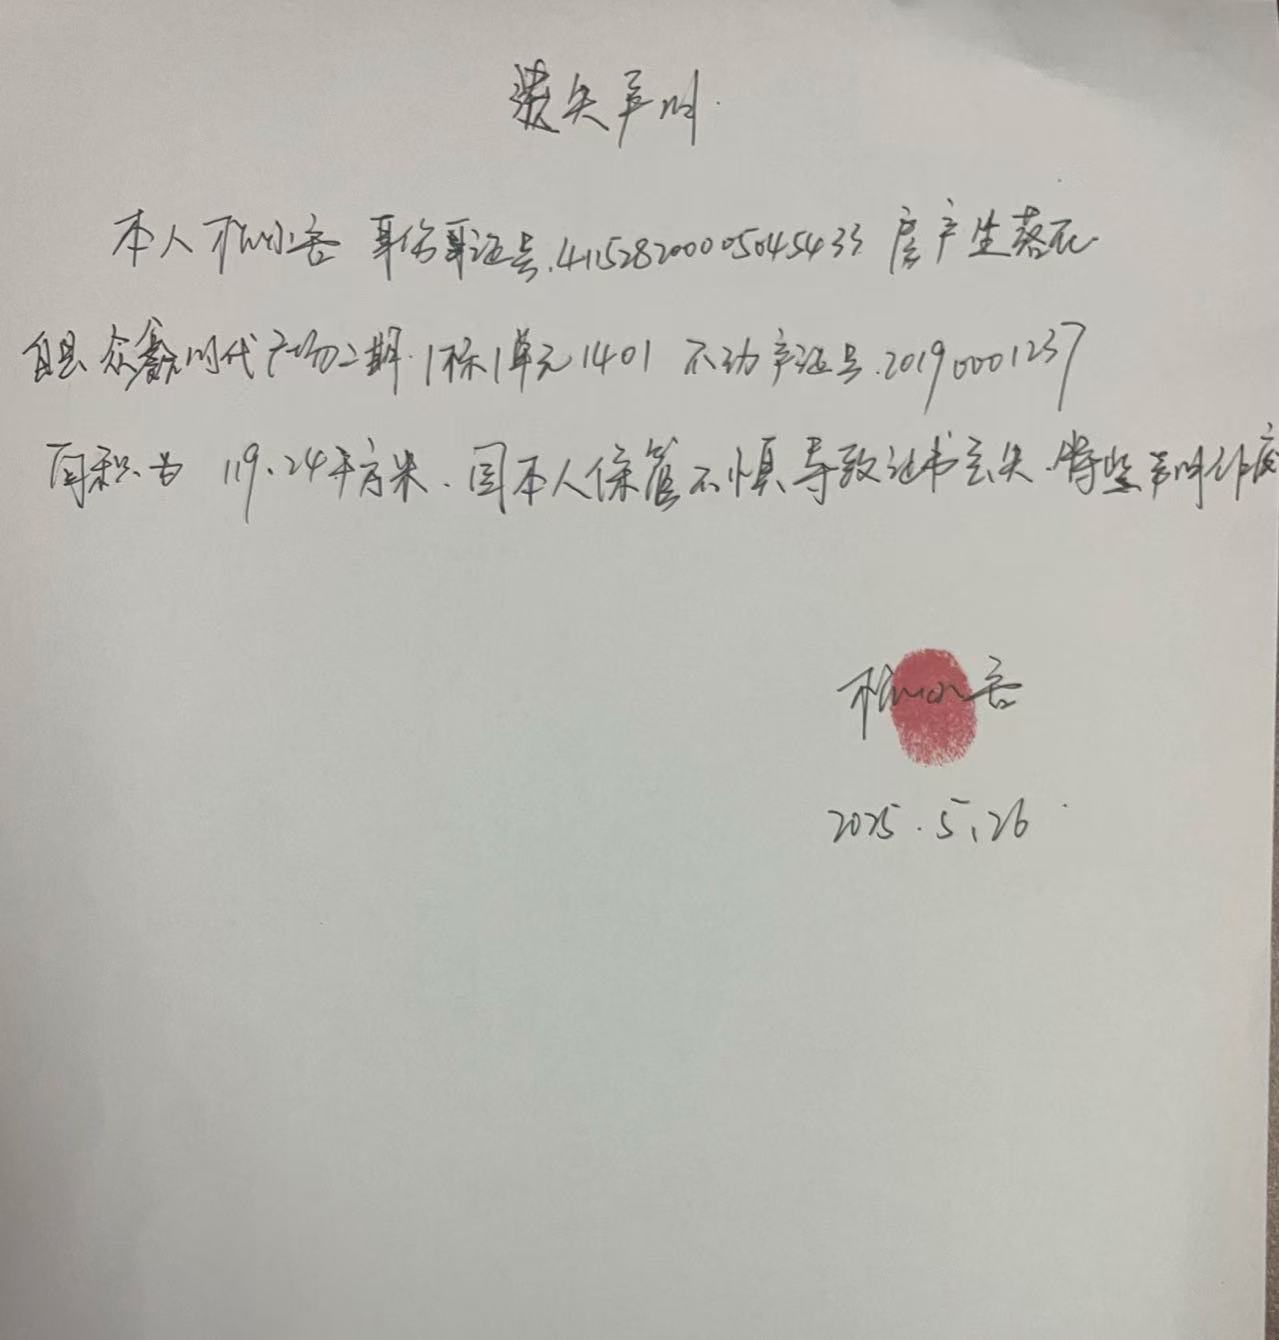 遗失声明.
本人 身份证号.411528200005045433 房产坐落在
息县众鑫时代广场二期.1栋1单元1401 不动产证号.20190001237
面积为 119.24平方米.因本人保管不慎导致证书丢失.特此声明作废
2025.5.26